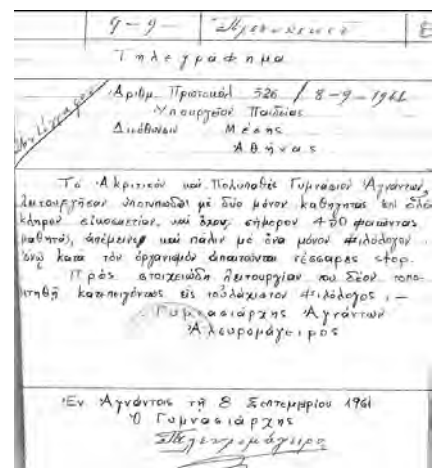 9-9-
Τηλεγράφημα
Ἀντίγραφον
Ἀριθμ. Πρωτοκόλ 526 / 8-9-1961
Ὑπουργεῖον Παιδείας
Διεύθυνσιν Μέσης
Ἀθήνας
Τό Ἀκριτικόν καί Πολυπαθές Γυμνάσιον Ἀγνάντων,
λειτουργῆσαν ὑποτυπωδῶς μέ δύο μόνον καθηγητάς ἐπί ὁλό
κληρον εἰκοσαετίαν, καί ἔχον σήμερον 400 φοιτῶντας
μαθητάς, ἀπέμεινε καί πάλιν μέ ἕνα μόνον φιλόλογον
ἐνῷ κατά τόν ὀργανισμόν ἀπαιτοῦνται τέσσαρες stop.
Πρός στοιχειώδη λειτουργίαν του δέον τοπο-
θητηθῇ κατεπειγόντως εἷς τοὐλάχιστον φιλόλογος.-
Γυμνασιάρχης Ἀγνάντων
Ἀλευρομάγειρος
Ἐν Ἀγνάντοις τῇ 8 Σεπτεμβρίου 1961
Ὁ Γυμνασιάρχης